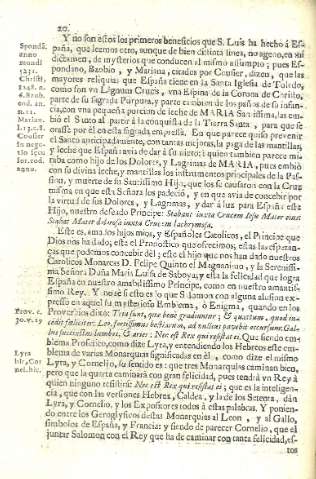 20.
Y no son estos los primeros beneficios que S. Luis ha hecho á Es-
paña, que leemos otro, aunque de bien distinta linea, no ageno, en mi
dictamen, de mysterios que conducen al mismo assumpto; pues Es-
pondano, Bzobio, y Mariana, citados por Cousier, dizen, que las
mayores reliquias que España tiene en la Santa Iglesia de Toledo,
como son vn Lignum Crucis, vna Espina de la Corona de Christo,
parte de su sagrada Purpura, y parte tambien de los paños de su infan-
cia, con vna pequeña porcion de leche de MARIA Santissima, las em-
biò el Santo al partir à la conquista de la Tierra Santa, para que se
orasse por él en esta sagrada empressa. En que parece quiso prevenir
el Santo anticipadamente, con tantas mejoras, la paga de las mantillas,
y leche que España avia de dar à su nieto; i quien tambien parece mi-
raba como hijo de los Dolores, y Lagrimas de MARIA, pues embiò
con su divina leche, y mantillas los instrumentos principales de la Pas-
sion, y muerte de su Santissimo Hijo, que los se causaron con la Cruz
misma en que esta Señora los padeciò, y en que avia de concebir por
la virtud de sus Dolores, y Lagrimas, y dar à luz para España este
Hijo, nuestro deseado Principe: Stabant iuxta Crucem Iesu Mater eius:
Stabat Mater dolorosa iuxta Crucem lachrymosa.
Este es, amados hijos mios, y Españoles Catolicos, el Principe que
Dios nos ha dado; esta el Pronostico que ofrecimos; estas las esperan-
ças que podemos concebir dél; este el hijo que nos han dado nuestros
Catolicos Monarcas D. Felipe Quinto el Magnanimo, y la Serenissi-
ma Señora Doña Maria Luisa de Saboya; y esta la felicidad que logra
España en nuestro amantissimo Principe, como en nuestro amantis-
simo Rey. Y no sè si esto es lo que Salomon con alguna alusion ex-
pressò en aquel su mysterioso Emblema, ò Enigma, quando en los
Proverbios dixo: Tria sunt, quæ benè gradiuntur; & quartum, quod in-
cedit feliciter: Leo, fortissimus bestiarum, ad nullius pavebit occursum: Gal-
lus succinctus lumbos, & aries: Nec est Rex qui resistat ei. Que siendo em-
blema Profetico, como dize Lyra, y entendiendo los Hebreos este em-
blema de varias Monarquias significadas en èl, como dize el mismo
Lyra, y Cornelio, su sentido es: que tres Monarquias caminan bien,
pero que la quarta caminarà con gran felicidad, pues tendrà vn Rey à
quien ninguno resistirà: Nec est Rex qui resistat ei; que es la inteligen-
cia, que con las versiones Hebrea, Caldea, y la de los Setenta, dàn
Lyra, y Cornelio, y los Expositores todos à estas palabras. Y ponien-
do entre los Geroglyficos destas Monarquias al Leon, y al Gallo,
simbolos de España, y Francia: y siendo de parecer Cornelio, que al
juntar Salomon con el Rey que ha de caminar con tanta felicidad, es-
tos
Spond.
anno
mundi
1231.
Christi
1248. n.
6. Bzob.
eod. an.
n. 11.
Marian.
l. 13. c. 8.
Cousier
in nego-
lem sæcu
lor. eod.
anno.
Prov. c.
30. v. 29
Lyra
hic, Cor
nel. hic.